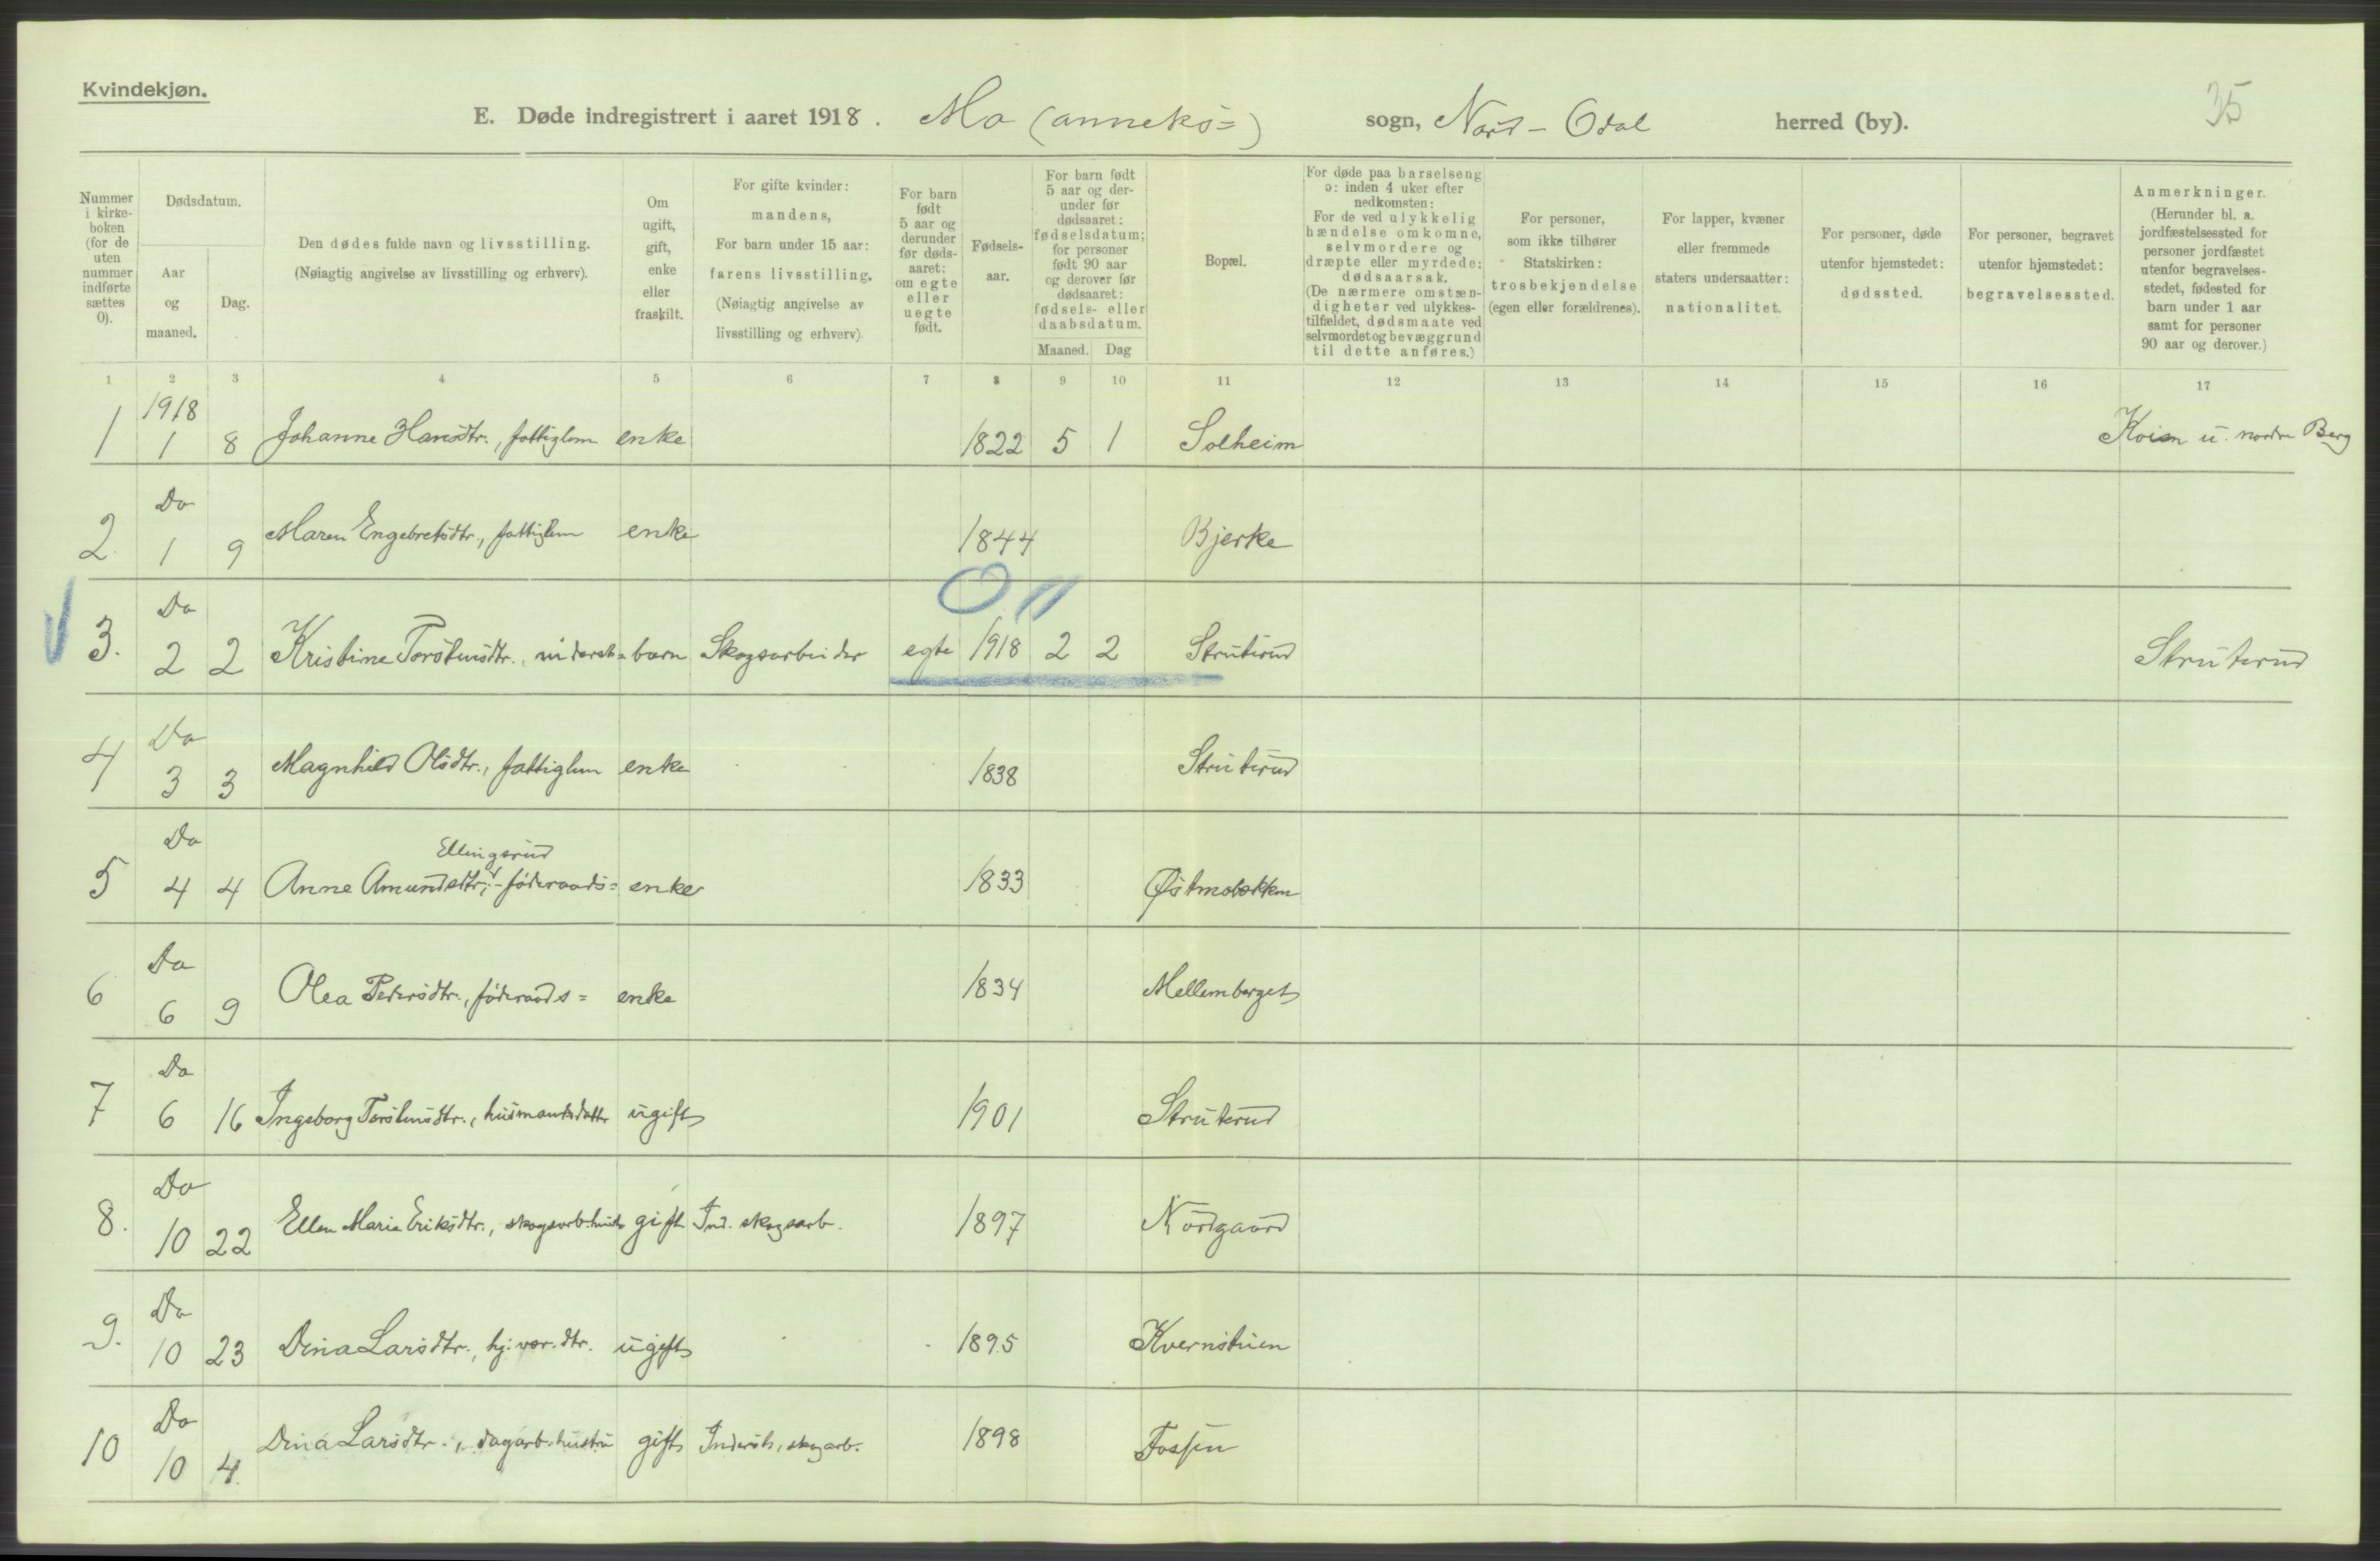 Kvindekjøn.
E. Døde indregistrert i aaret 1918. Mo (anneks=) sogn, Nord-Odal herred (by).
35
Nummer i kirke-boken (for de uten nummer indførte sættes 0).
Dødsdatum.
Aar og maaned.
Dag.
Den dødes fulde navn og livsstilling.
(Nøiagtig angivelse av livsstilling og erhverv).
Om ugift, gift, enke eller fraskilt.
For gifte kvinder: mandens,
For barn under 15 aar: farens livsstilling.
(Nøiagtig angivelse av livsstilling og erhverv).
For barn født 5 aar og derunder før døds-aaret: om egte eller uegte født.
Fødsels-aar.
For barn født 5 aar og der-under før dødsaaret: fødselsdatum; for personer født 90 aar og derover før dødsaaret: fødsels- eller daabsdatum.
Maaned. Dag
Bopæl.
For døde paa barselseng ɔ: inden 4 uker efter nedkomsten:
For de ved ulykkelig hændelse omkomne, selvmordere og dræpte eller myrdede: dødsaarsak.
(De nærmere omstæn-digheter ved ulykkes-tilfældet, dødsmaate ved selvmordet og bevæggrund til dette anføres.)
For personer, som ikke tilhører Statskirken: trosbekjendelse (egen eller forældrenes).
For lapper, kvæner eller fremmede staters undersaatter: nationalitet.
For personer, døde utenfor hjemstedet: dødssted.
For personer, begravet utenfor hjemstedet: begravelsessted.
Anmerkninger.
(Herunder bl. a. jordfæstelsessted for personer jordfæstet utenfor begravelses-stedet, fødested for barn under 1 aar samt for personer 90 aar og derover.)
1 2 3 4 5 6 7 8 9 10 11 12 13 14 15 16 17
1 1918 1 8 Johanne Hansdtr., fattiglem enke 1822 5 1 Solheim Koien u. nordre Berg
2. Do 1 9 Maren Engebretsdtr., fattiglem enke 1844 Bjerke
3. Do 2 2 Kristine Torstensdtr., inderst= barn Skogsarbeider egte 1918 2 2 Struterud Struterud
4 Do 3 3 Magnhild Olsdtr., fattiglem enke 1838 Struterud
Ellingsrud
5 Do 4 4 Anne Amundsdtr., føderaads= enke 1833 Østmobakken
6 Do 6 9 Olea Pedersdtr., føderaads= enke 1834 Mellemberget
7 Do 6 16 Ingeborg Torstensdtr., husmandsdatter ugift 1901 Struterud
8. Do 10 22 Ellen Marie Eriksdtr., skogsarb.hustr gift Ind. skogsarb. 1897 Nordgaard
9. Do 10 23 Dina Larsdtr., hj.vær. dtr. ugift 1895 Kvernstuen
10 Do 10 4. Dina Larsdtr., dagarb.hustru gift Inderst, skogarb. 1898 Fossen